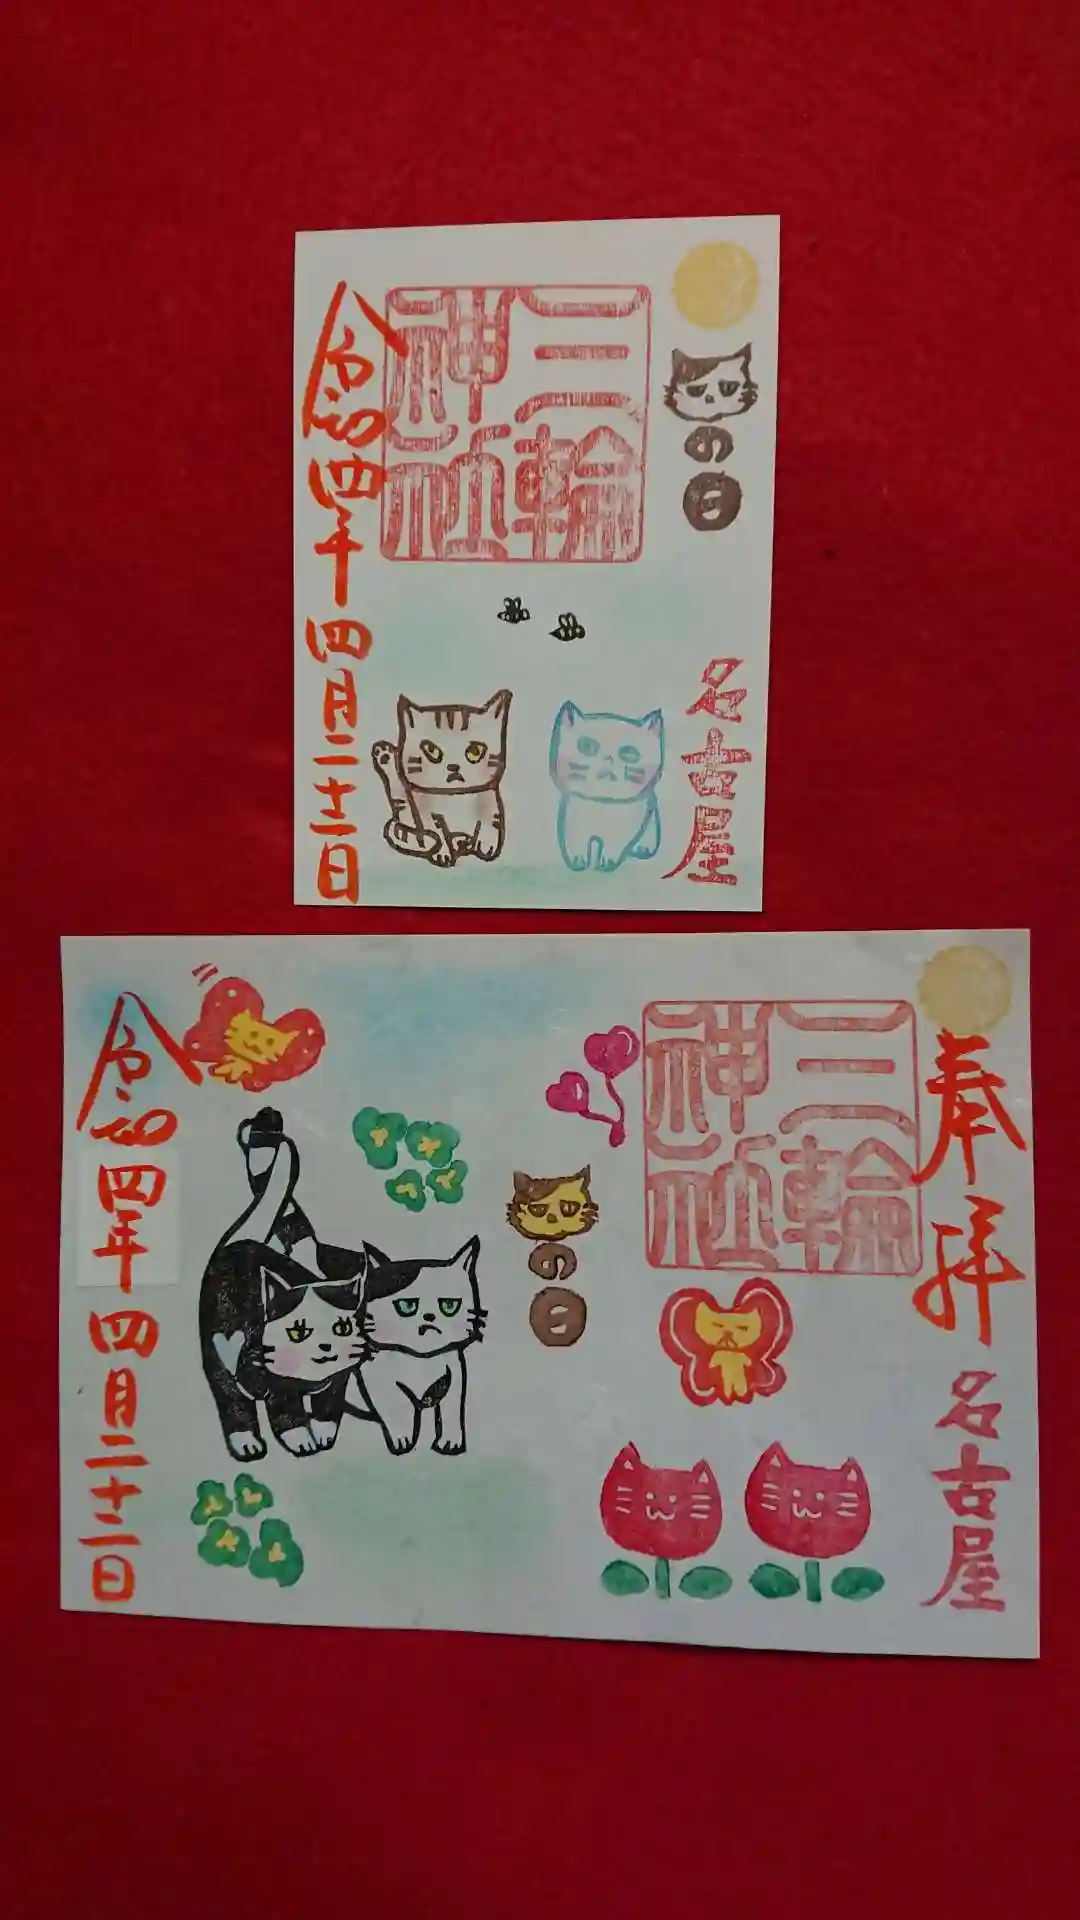 の日
三輪
神社
名古屋
令和四年四月二十二日
奉拝
名古屋
三輪
神社
の日
令和四年四月二十二日